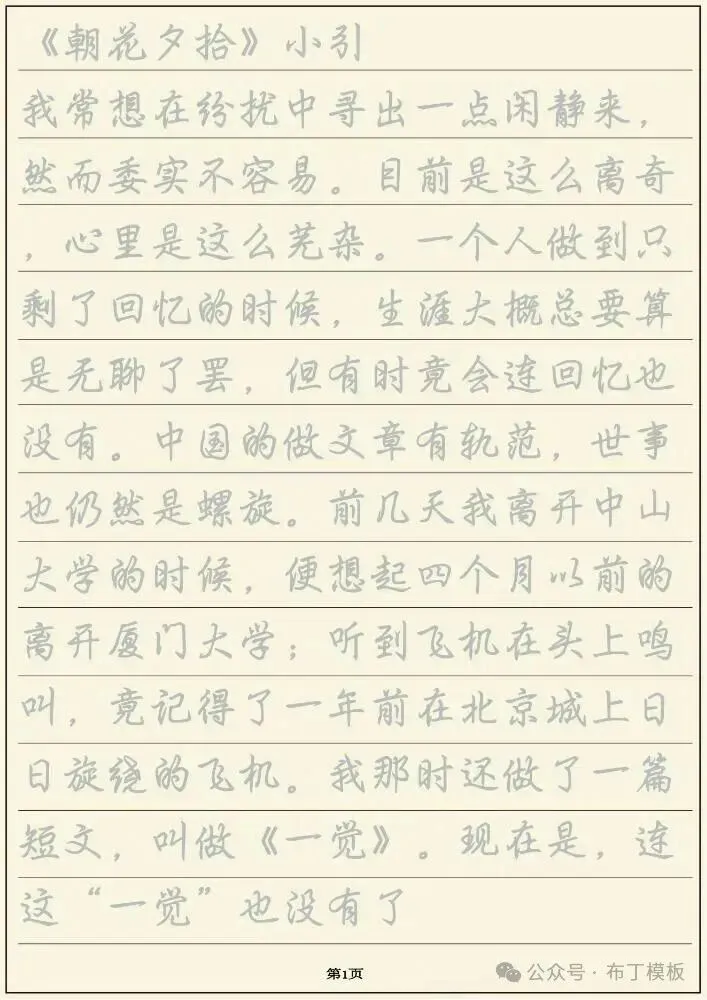 《朝花夕拾》小引
我常想在纷扰中寻出一点闲静来，
然而委实不容易。目前是这么离奇
，心里是这么芜杂。一个人做到只
剩了回忆的时候，生涯大概总要算
是无聊了罢，但有时竟会连回忆也
没有。中国的做文章有轨范，世事
也仍然是螺旋。前几天我离开中山
大学的时候，便想起四个月以前的
离开厦门大学；听到飞机在头上鸣
叫，竟记得了一年前在北京城上日
日旋绕的飞机。我那时还做了一篇
短文，叫做《一觉》。现在是，连
这“一觉”也没有了
第1页
公众号·布丁模板